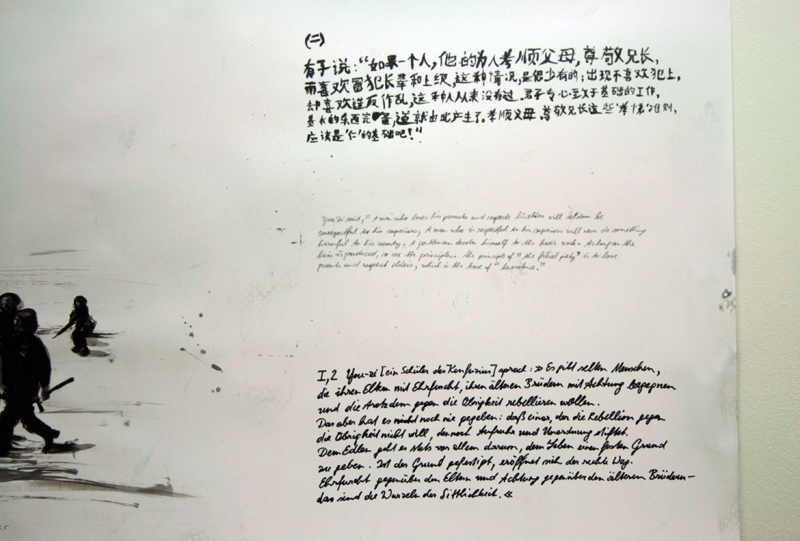 (二)
有子说:“如果一个人,他的为人孝顺父母,尊敬兄长,
而喜欢冒犯长辈和上级,这种情况,是很少有的;出现不喜欢犯上,
却喜欢造反作乱,这种人从来没有过.君子专心至致于基础的工作,
基本的东西完备,道就由此产生了.孝顺父母,尊敬兄长这些孝悌的准则,
应该是“仁”的基础吧!”
You-zi said," A man who loves his parents and respects his elders will seldom be
unrespectful to his superiors, A man who is respectful to his superiors will never do something
harmful to his country. A gentleman devotes himself to the basic work. As long as the
basis is produced, so are the principles. The principle of "the filial piety" is to love
parents and respect elders, which is the base of "benevolence."
I,2 You-zi [ein Schüler des Konfuzius] sprach: » Es gibt selten Menschen,
die ihren Eltern mit Ehrfurcht, ihren älteren Brüdern mit Achtung begegnen
und die trotzdem gegen die Obrigkeit rebellieren wollen.
Das aber hat es noch nie gegeben: daß einer, der die Rebellion gegen
die Obrigkeit nicht will, dennoch Aufruhr und Unordnung stiftet.
Dem Edlen geht es stets vor allem darum, dem Leben einen festen Grund
zu geben. Ist der Grund gefestigt, eröffnet sich der rechte Weg.
Ehrfurcht gegenüber den Eltern und Achtung gegenüber den älteren Brüdern–
das sind die Wurzeln der Sittlichkeit. «